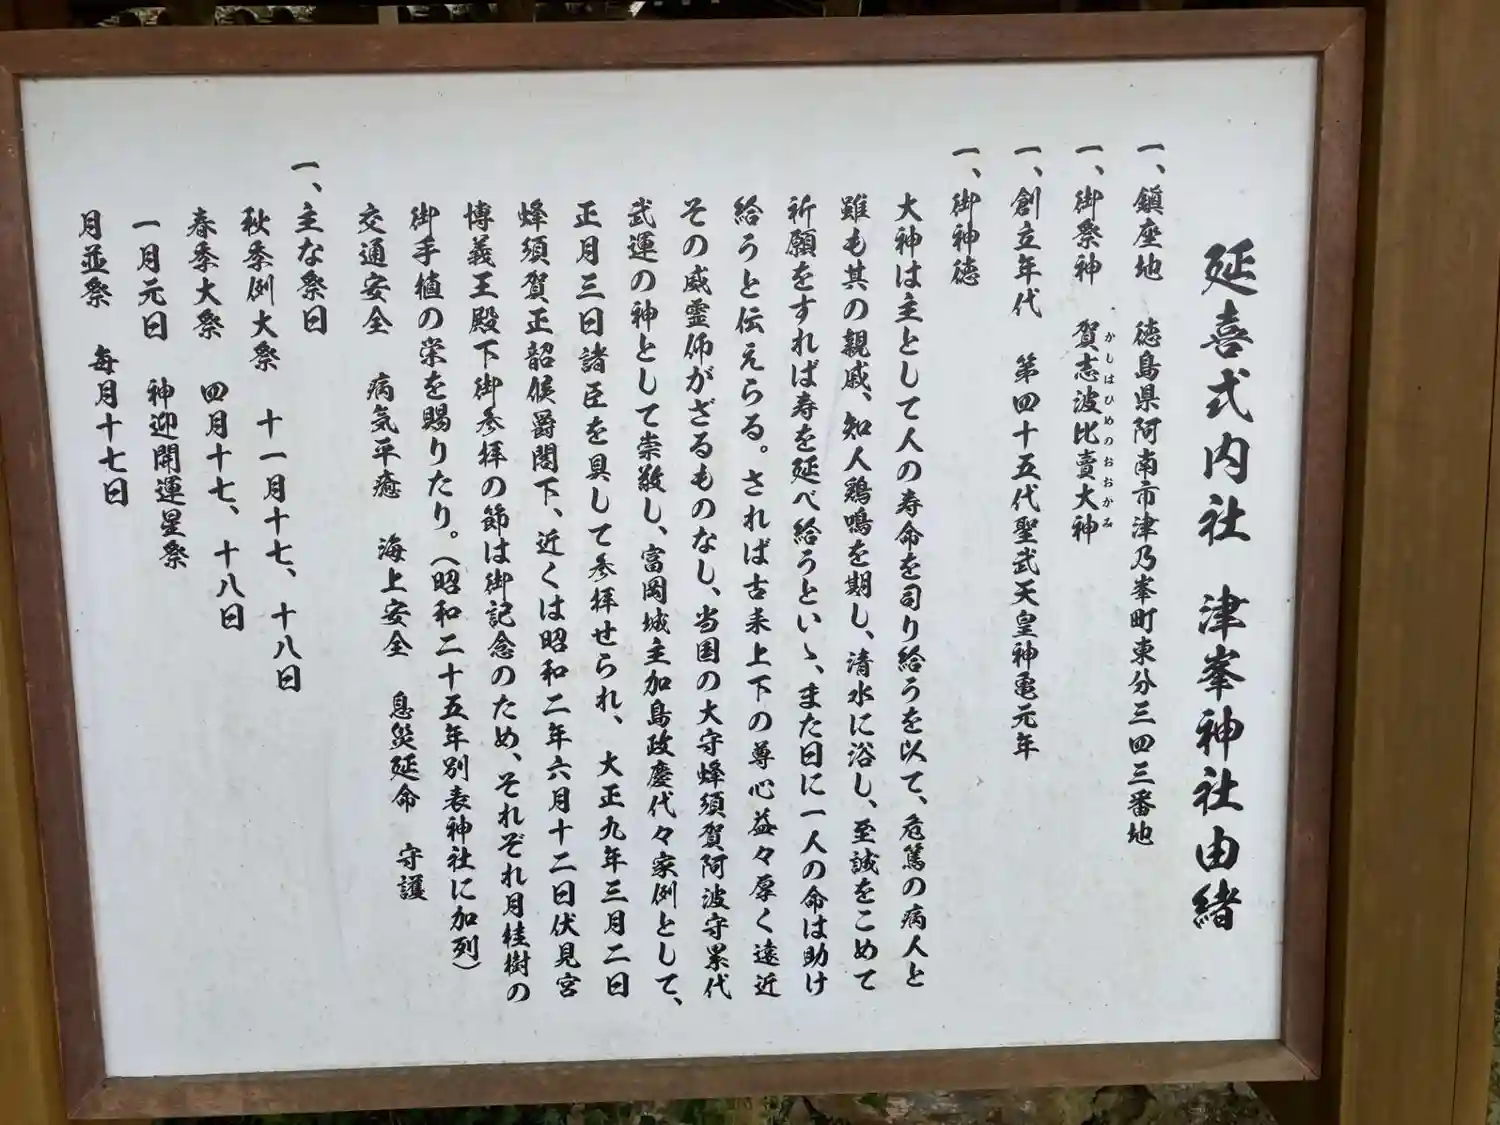 延喜式内社 津峯神社由緒
一、鎮座地 徳島県阿南市津乃峯町東分三四三番地
一、御祭神 賀志波比賣大神
かしはひめのおおかみ
一、創立年代 第四十五代聖武天皇神亀元年
一、御神徳
大神は主として人の寿命を司り給うを以て、危篤の病人と
雖も其の親戚、知人鶏鳴を期し、清水に浴し、至誠をこめて
祈願をすれば寿を延べ給うといゝ、また日に一人の命は助け
給うと伝えらる。されば古来上下の尊心益々厚く遠近
その威霊仰がざるものなし、当国の大守蜂須賀阿波守累代
武運の神として崇敬し、富岡城主加島政慶代々家例として、
正月三日諸臣を具して参拝せられ、大正九年三月二日
蜂須賀正韶候爵閣下、近くは昭和二年六月十二日伏見宮
博義王殿下御参拝の節は御記念のため、それぞれ月桂樹の
御手植の栄を賜りたり。(昭和二十五年別表神社に加列)
交通安全 病気平癒 海上安全 息災延命 守護
一、主な祭日
秋季例大祭 十一月十七、十八日
春季大祭 四月十七、十八日
一月元日 神迎開運星祭
月並祭 毎月十七日